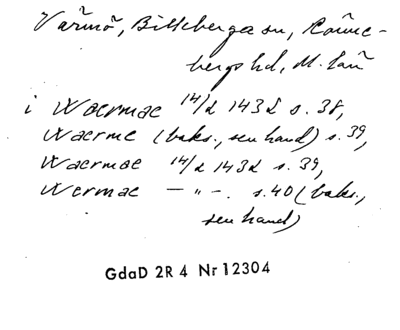 Värmö, Billeberga sn, Rönne-
bergs hd, M. län
i Waermae 14/2 1432 s. 38,
Waerme (baks., sen hand) s. 39,
Waermae 14/2 1432 s. 39,
Wermae — " — . s. 40 (baks.,
sen hand)
GdaD 2R 4 Nr 12304